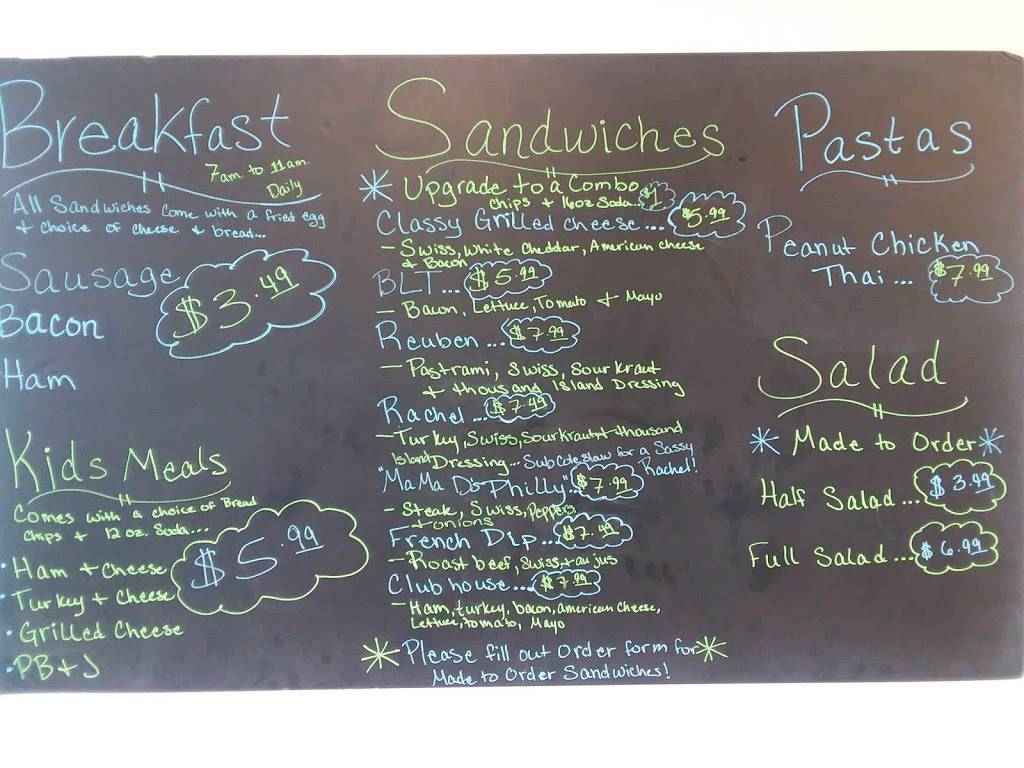 Breakfast
7am. to 11am.
Daily
All Sandwiches come with a fried egg
+ choice of cheese + bread...
Sausage
$3.49
Bacon
Ham
Kids Meals
Comes with a choice of Bread
chips + 12 oz. Soda...
$5.99
• Ham + Cheese
• Turkey + Cheese
• Grilled Cheese
• PB + J
Sandwiches
* Upgrade to a Combo
chips + 16oz Soda... $1
Classy Grilled cheese... $5.99
- Swiss, White Cheddar, American cheese
& Bacon
BLT... $5.99
- Bacon, Lettuce, Tomato + Mayo
Reuben... $7.99
- Pastrami, Swiss, Sour Kraut
+ thousand Island Dressing
Rachel... $7.49
- Turkey, Swiss, Sourkraut + thousand
Island Dressing... Sub Coleslaw for a Sassy
Rachel!
"MaMa D's Philly".. $7.99
- Steak, Swiss, Peppers
+ onions
French Dip... $7.49
- Roast beef, Swiss, + au jus
Club house... $7.99
- Ham, turkey, bacon, american cheese,
Lettuce, tomato, Mayo
* Please fill out Order form for *
Made to Order Sandwiches!
Pastas
Peanut Chicken
Thai... $7.99
Salad
* Made to Order *
Half Salad... $3.49
Full Salad... $6.99